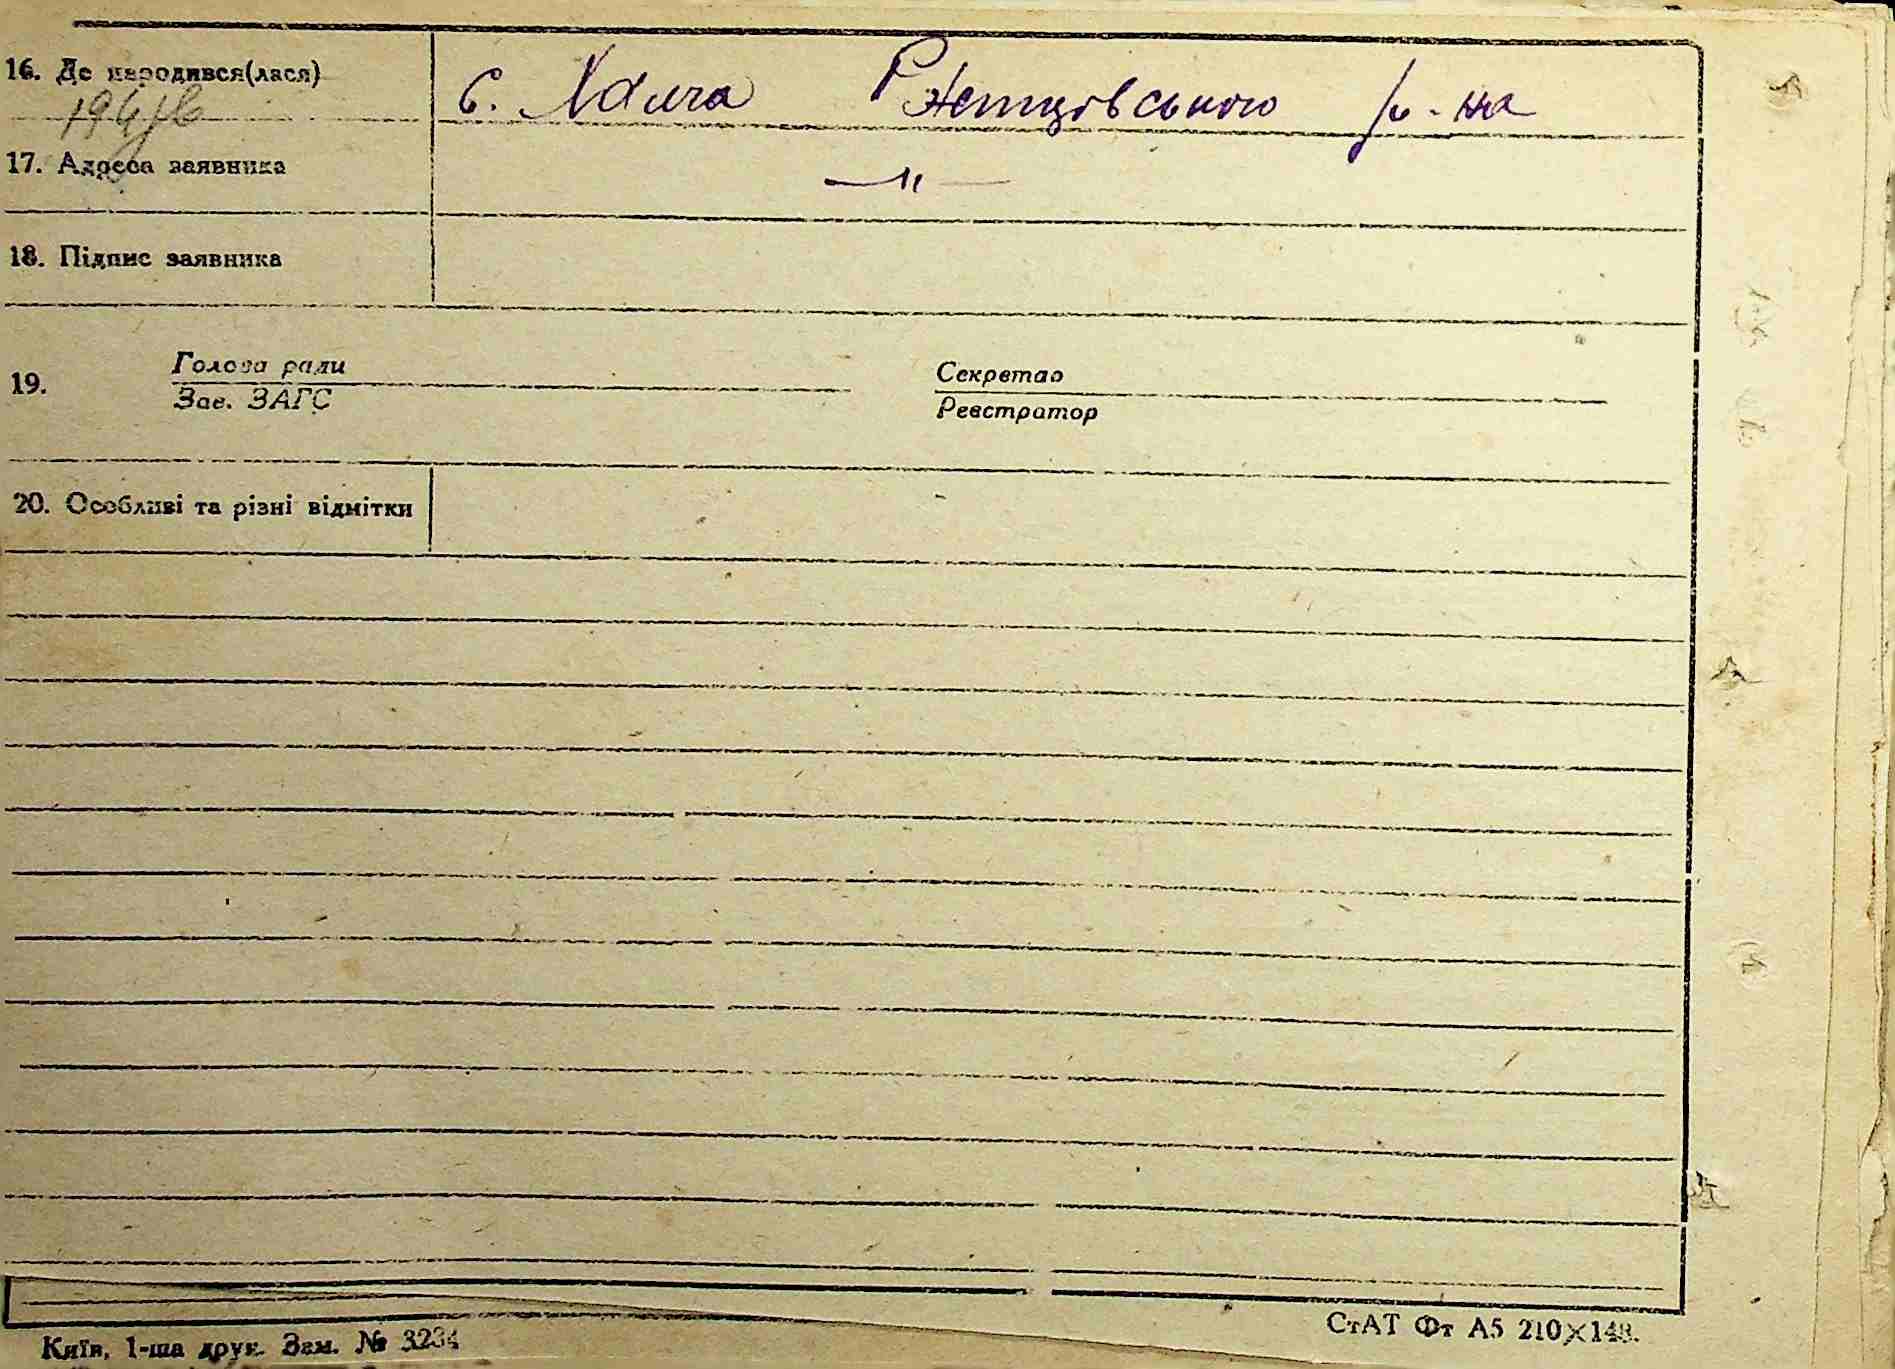 16. Де народився(лася)
с. Халча Ржищівського р-на
17. Адреса заявника
—"—
18. Підпис заявника
19.
Голова ради
Зав. ЗАГС
Секретар
Реєстратор
20. Особливі та різні відмітки
Київ, 1-ша друк. Зам. № 3234
СтАТ Фт А5 210×148.